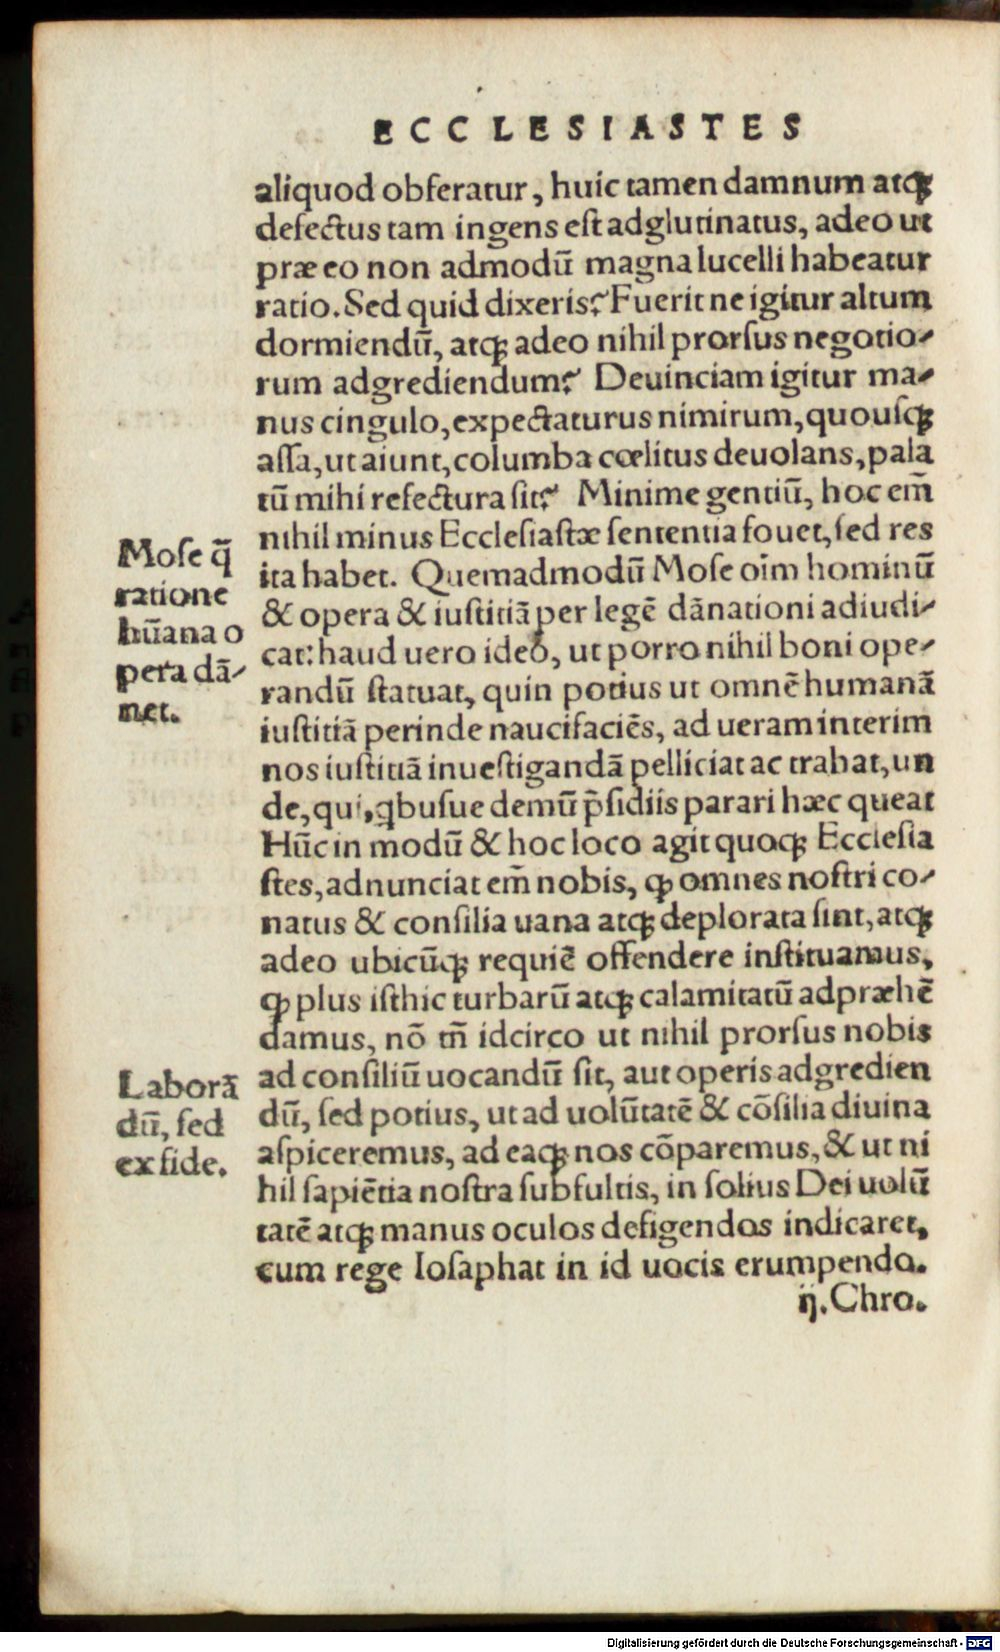 ECCLESIASTES
aliquod obferatur, huic tamen damnum atqꝫ
defectus tam ingens eſt adglutinatus, adeo ut
præ eo non admodū magna lucelli habeatur
ratio. Sed quid dixeris? Fuerit ne igitur altum
dormiendū, atqꝫ adeo nihil prorſus negotio-
rum adgrediendum? Deuinciam igitur ma-
nus cingulo, expectaturus nimirum, quouſqꝫ
aſſa, ut aiunt, columba cœlitus deuolans, pala
tū mihi refectura ſit? Minime gentiū, hoc em̄
nihil minus Eccleſiaſtæ ſententia fouet, ſed res
ita habet. Quemadmodū Moſe oīm hominū
& opera & iuſtitiā per legē dānationi adiudi-
cat: haud uero ideo, ut porro nihil boni ope-
randū ſtatuat, quin potius ut omnē humanā
iuſtitiā perinde naucifaciēs, ad ueram interim
nos iuſtitiā inueſtigandā pelliciat ac trahat, un
de, qui, qbuſue demū p̄ſidiis parari hæc queat
Hūc in modū & hoc loco agit quoqꝫ Eccleſia
ſtes, adnunciat em̄ nobis, ꝙ omnes noſtri co-
natus & conſilia uana atqꝫ deplorata ſint, atqꝫ
adeo ubicūqꝫ requiē offendere inſtituamus,
ꝙ plus iſthic turbarū atqꝫ calamitatū adpræhē
damus, nō tn̄ idcirco ut nihil prorſus nobis
ad conſiliū uocandū ſit, aut operis adgredien
dū, ſed potius, ut ad uolūtatē & cōſilia diuina
aſpiceremus, ad eaqꝫ nos cōparemus, & ut ni
hil ſapiētia noſtra ſubfultis, in ſolius Dei uolū
tatē atqꝫ manus oculos defigendos indicaret,
cum rege Ioſaphat in id uocis erumpendo.
ij. Chro.
Moſe q̄
ratione
hūana o
pera dā-
net.
Laborā
dū, ſed
ex fide.
Digitalisierung gefördert durch die Deutsche Forschungsgemeinschaft - DFG